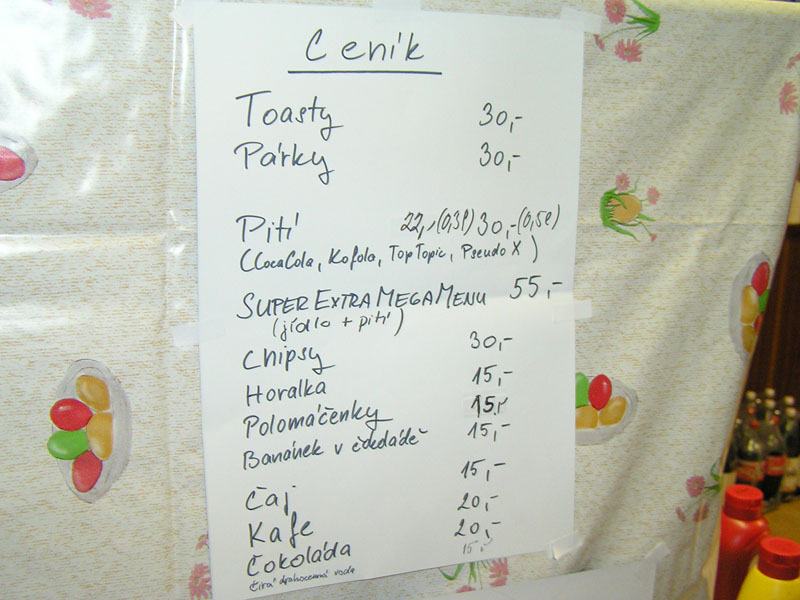 Ceník
Toasty 30,-
Párky 30,-
Pití 22,-(0,3l) 30,-(0,5l)
(CocaCola, Kofola, TopTopic, Pseudo X)
SUPER EXTRA MEGA MENU 55,-
(jídlo + pití)
Chipsy 30,-
Horalka 15,-
Polomáčenky 15,-
Banánek v čokoládě 15,-
Čaj 15,-
Kafe 20,-
Čokoláda 20,-
Čirá drahocenná voda 15,-